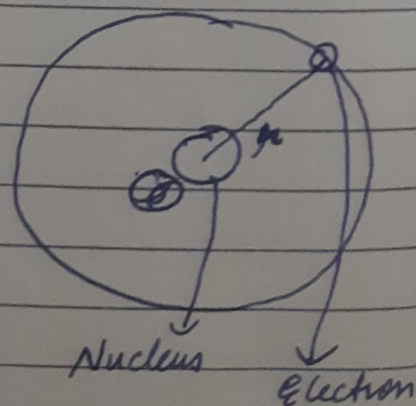 r
Nucleus
Electron